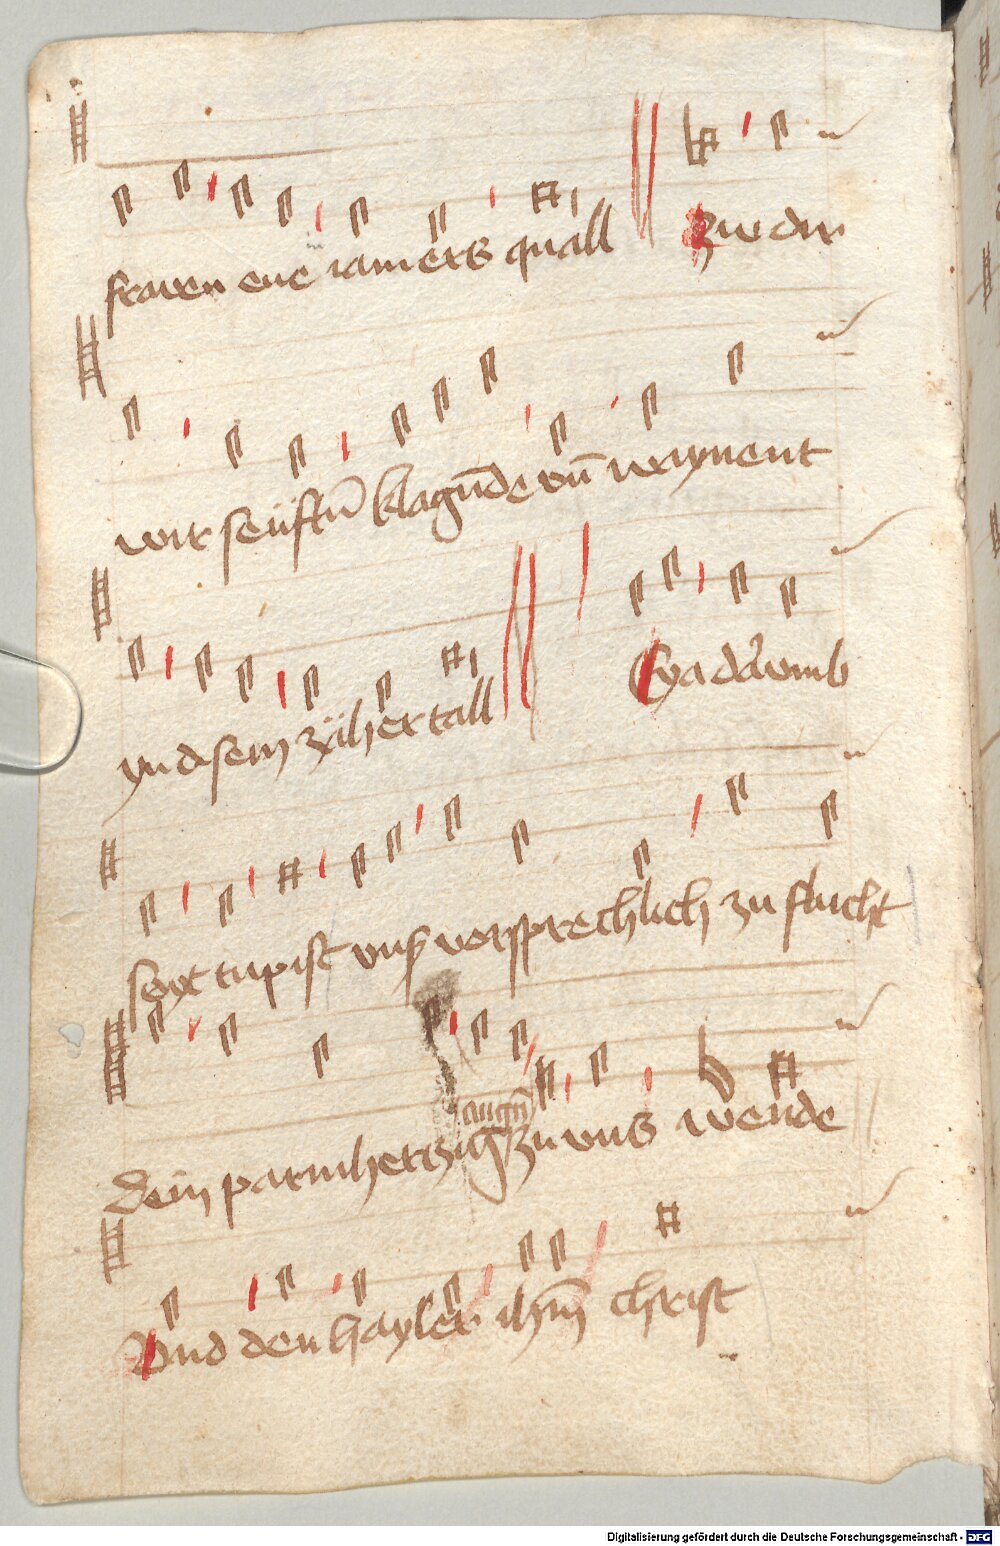 frawen eúe iamers quall Zwe dir
wir seüftn̄ klagn̄de vn̄ weynent
yn disem zäher tall Eya darvmb
seyt tu pist vnß versprechlich zu flucht
dein parmhertzig augn̄ zu vns wende
Vnd den hayler ihm̄ christ
Digitalisierung gefördert durch die Deutsche Forschungsgemeinschaft - DFG